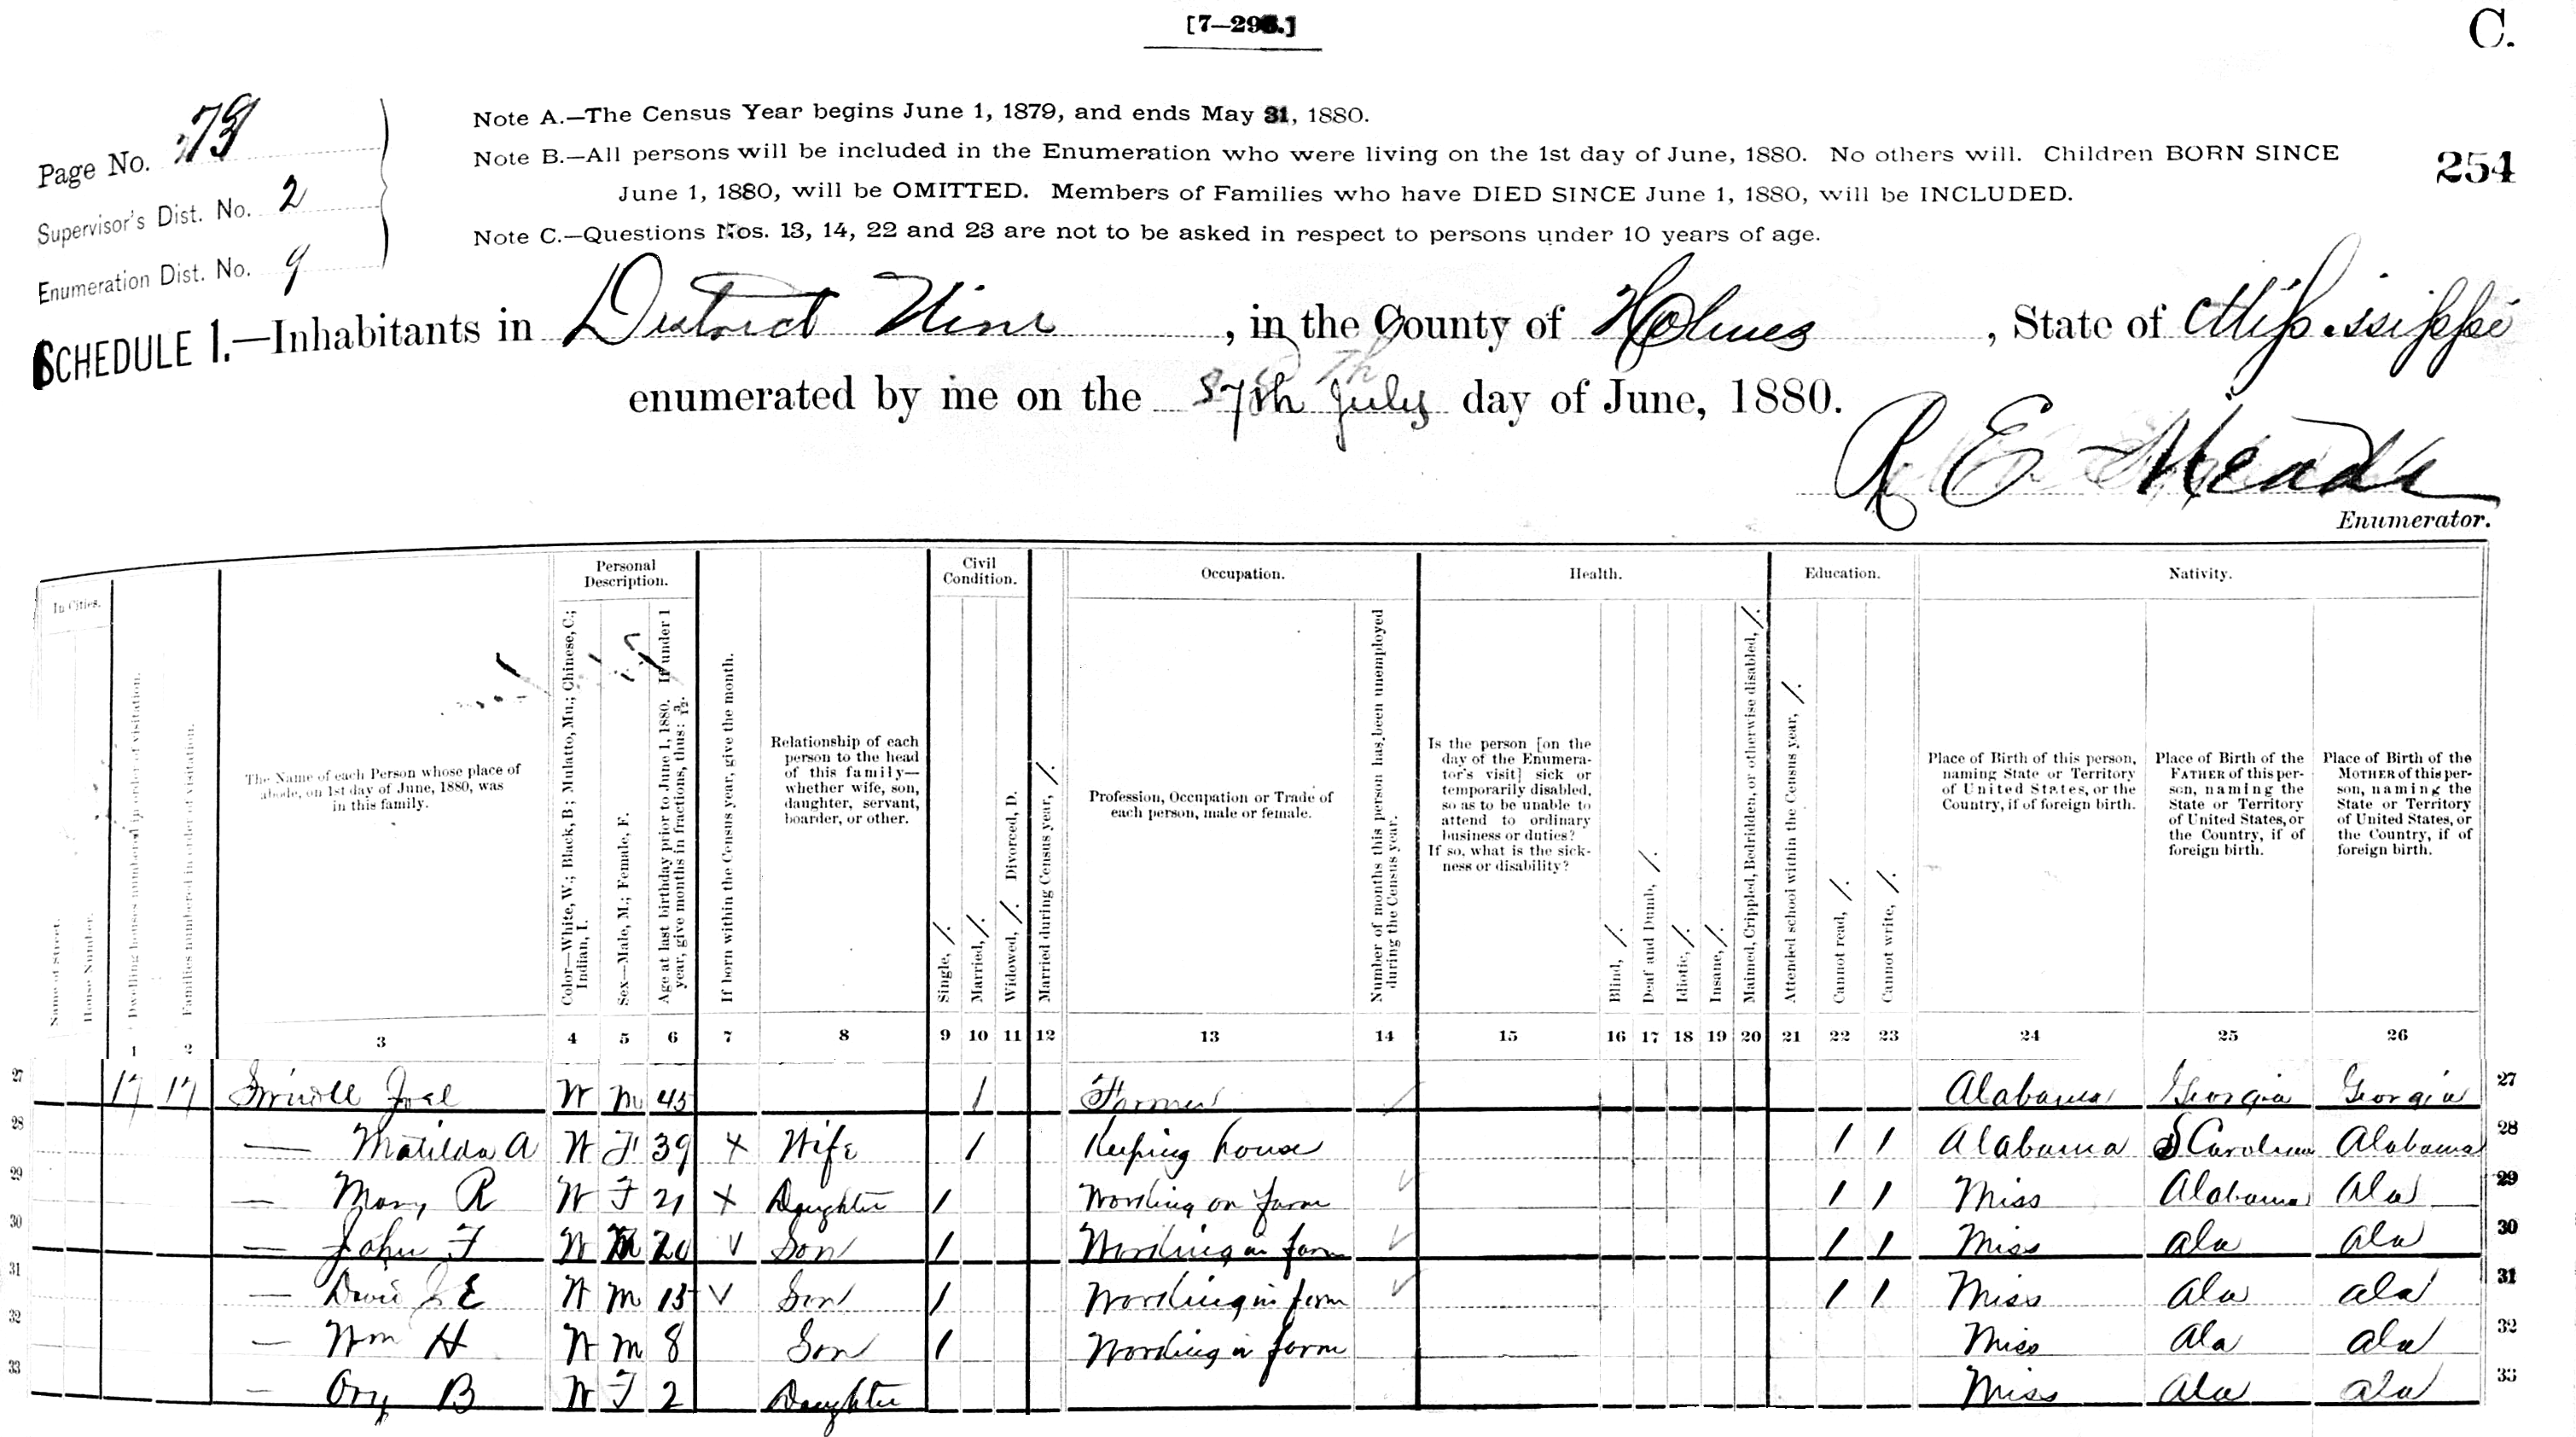 [7—296.]
C.
Page No. 73
Supervisor's Dist. No. 2
Enumeration Dist. No. 9
Note A.—The Census Year begins June 1, 1879, and ends May 31, 1880.
Note B.—All persons will be included in the Enumeration who were living on the 1st day of June, 1880. No others will. Children BORN SINCE
June 1, 1880, will be OMITTED. Members of Families who have DIED SINCE June 1, 1880, will be INCLUDED.
Note C.—Questions Nos. 13, 14, 22 and 23 are not to be asked in respect to persons under 10 years of age.
254
SCHEDULE 1.—Inhabitants in District Nine, in the County of Holmes, State of Mississippi
enumerated by me on the 7th July day of June, 1880.
R E Meade
Enumerator.
In Cities.
Name of Street.
House Number.
Dwelling houses numbered in order of visitation.
Families numbered in order of visitation.
The Name of each Person whose place of
abode, on 1st day of June, 1880, was
in this family.
Personal
Description.
Color—White, W.; Black, B.; Mulatto, Mu.; Chinese, C.;
Indian, I.
Sex—Male, M.; Female, F.
Age at last birthday prior to June 1, 1880. If under 1
year, give months in fractions, thus: 3/12.
If born within the Census year, give the month.
Relationship of each
person to the head
of this family—
whether wife, son,
daughter, servant,
boarder, or other.
Civil
Condition.
Single, /.
Married, /.
Widowed, /. Divorced, D.
Married during Census year, /.
Occupation.
Profession, Occupation or Trade of
each person, male or female.
Number of months this person has been unemployed
during the Census year.
Health.
Is the person [on the
day of the Enumera-
tor's visit] sick or
temporarily disabled,
so as to be unable to
attend to ordinary
business or duties?
If so, what is the sick-
ness or disability?
Blind, /.
Deaf and Dumb, /.
Idiotic, /.
Insane, /.
Maimed, Crippled, Bedridden, or otherwise disabled, /.
Education.
Attended school within the Census year, /.
Cannot read, /.
Cannot write, /.
Nativity.
Place of Birth of this person,
naming State or Territory
of United States, or the
Country, if of foreign birth.
Place of Birth of the
FATHER of this per-
son, naming the
State or Territory
of United States, or
the Country, if of
foreign birth.
Place of Birth of the
MOTHER of this per-
son, naming the
State or Territory
of United States, or
the Country, if of
foreign birth.
1 2 3 4 5 6 7 8 9 10 11 12 13 14 15 16 17 18 19 20 21 22 23 24 25 26
27 17 17 Swindle Joel W M 45 / Farmer Alabama Georgia Georgia 27
28 — Matilda A W F 39 X Wife / Keeping house / / Alabama S Carolina Alabama 28
29 — Mary R W F 21 X Daughter / Working on farm / / Miss Alabama Ala 29
30 — John F W M 20 V Son / Working on farm / / Miss Ala Ala 30
31 — E W M 13 V Son / Working on farm / / Miss Ala Ala 31
32 — Wm H W M 8 Son / Working on farm Miss Ala Ala 32
33 — Ory B W F 2 Daughter Miss Ala Ala 33